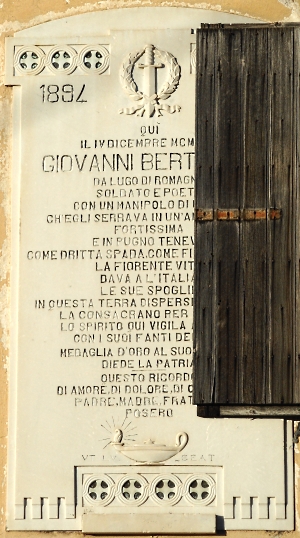 1894
QUI
IL IV DICEMBRE MCM
GIOVANNI BERT
DA LUGO DI ROMAGN
SOLDATO E POET
CON UN MANIPOLO DI
CH'EGLI SERRAVA IN UN'AN
FORTISSIMA
E IN PUGNO TENEV
COME DRITTA SPADA, COME FI
LA FIORENTE VIT
DAVA A L'ITALIA
LE SUE SPOGLIE
IN QUESTA TERRA DISPERS
LA CONSACRANO PER
LO SPIRITO QUI VIGILA A
CON I SUOI FANTI DE
MEDAGLIA D'ORO AL SUO
DIEDE LA PATRIA
QUESTO RICORDO
DI AMORE, DI DOLORE, DI
PADRE, MADRE, FRAT
POSERO